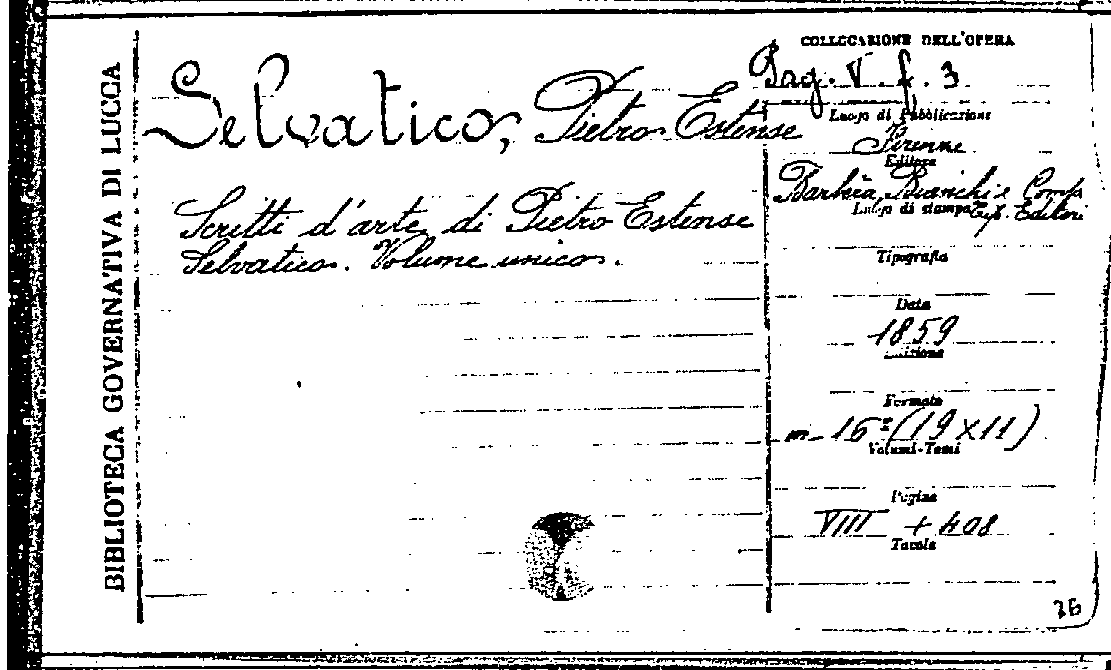 BIBLIOTECA GOVERNATIVA DI LUCCA
Selvatico, Pietro Estense
Scritti d'arte di Pietro Estense
Selvatico. Volume unico.
COLLOCAZIONE DELL'OPERA
Pag. V. f. 3
Luogo di Pubblicazione
Firenze
Editore
Barbèra, Bianchi e Comp.
Luogo di stampa Tip. Editori
Tipografia
Data
1859
Edizione
Formato
in-16° (19x11)
Volumi-Tomi
Pagine
VIII + 408
Tavole